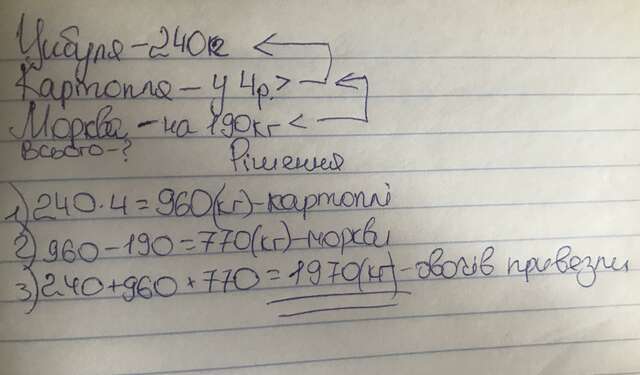 Цибуля - 240кг
Картопля - у 4р. >
Морква - на 190кг <
Всього - ?
Рішення
1) 240 · 4 = 960(кг) - картоплі
2) 960 - 190 = 770(кг) - моркви
3) 240 + 960 + 770 = 1970(кг) - овочів привезли